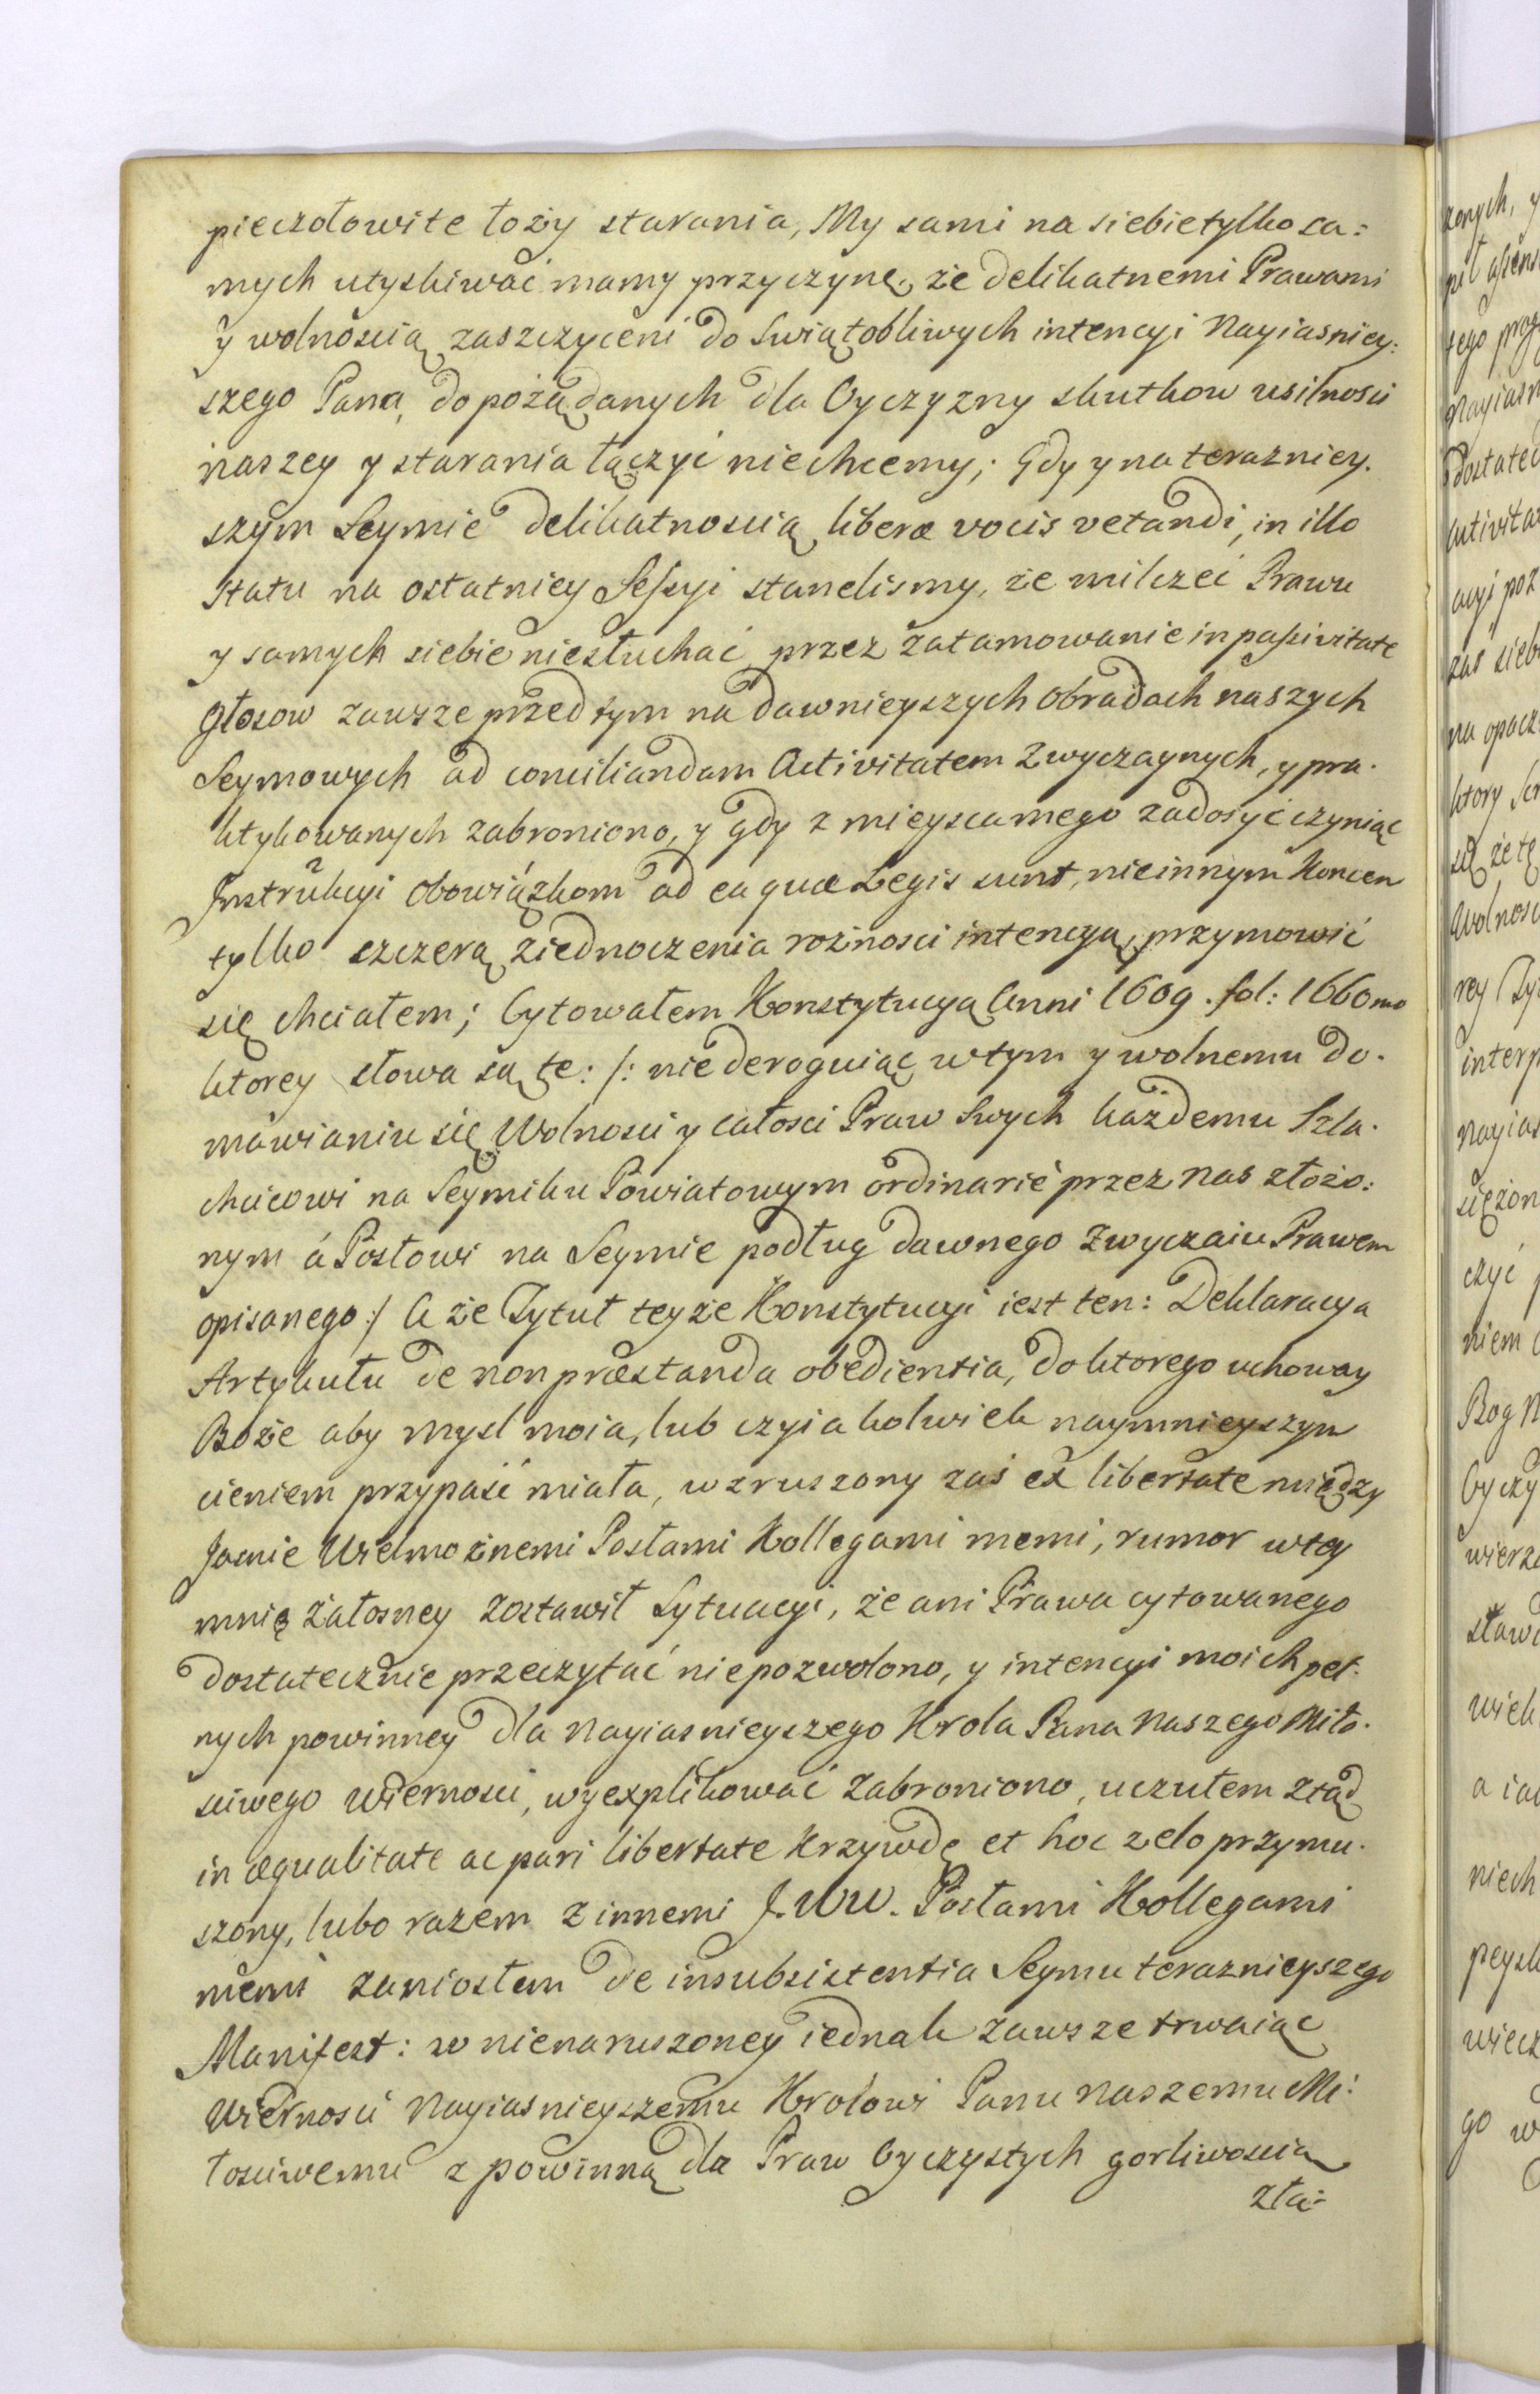 pieczołowite łoży starania, My sami na siebie tylko sa:
mych utyskiwać mamy przyczynę, że delikatnemi Prawami
y wolnoscią zaszczyceni do Swiątobliwych intencyi Nayiasniey:
szego Pana, do pożądanych dla Oyczyzny skutkow usilnosci
naszey y starania łączyć niechcemy; Gdy y na terazniey.
szym Seymie delikatnoscią liberæ vocis vetandi, in illo
statu na ostatniey Sessyi stanelismy, że milczeć Prawu
y samych siebie niesłuchać przez zatamowanie in passivitate
głosow zawsze przed tym na dawnieyszych Obradach naszych
Seymowych ad conciliandam Activitatem zwyczaynych, y pra.
ktykowanych zabroniono, y gdy z mieysca mego zadosyć czyniąc
Instrukcyi Obowiązkom ad ea quæ Legis sunt, nieinnym Koncen
tylko szczerą ziednoczenia rożnosci intencyą, przymowić
się chciałem; Cytowałem Konstytucyą Anni 1609. fol: 1660mo
ktorey słowa są te: /: nie deroguiąc w tym y wolnemu do.
mawianiu się Wolnosci y całosci Praw Swych każdemu Szla.
chcicowi na Seymiku Powiatowym ordinarie przez nas złożo:
nym á Posłowi na Seymie podług dawnego zwyczaiu Prawem
opisanego:/ A że Tytuł teyże Konstytucyi iest ten: Deklaracya
Artykułu de non præstanda obedientia, do ktorego uchoway
Boże aby mysl moia, lub czyiakolwiek naymnieyszym
cieniem przypaść miała, wzruszony zaś ex libertate między
Jasnie Wielmożnemi Posłami Kollegami memi, rumor w tey
mnię żałosney zostawił Sytuacyi, że ani Prawa cytowanego
dostatecznie przeczytać niepozwolono, y intencyi moich peł.
nych powinney dla Nayiasnieyszego Krola Pana Naszego Miło.
sciwego Wiernosci, wyexplikować zabroniono, uczułem ztąd
in æqualitate ac pari libertate Krzywdę et hoc zelo przymu.
szony, lubo razem z innemi J.WW. Posłami Kollegami
memi zaniosłem de insubsistentia Seymu terazniejszego
Manifest: w nienaruszoney iednak zawsze trwaiąc
Wiernosci Nayiasnieyszemu Krolowi Panu Naszemu Mi:
łosciwemu z powinną dla Praw Oyczystych gorliwoscią
zła: